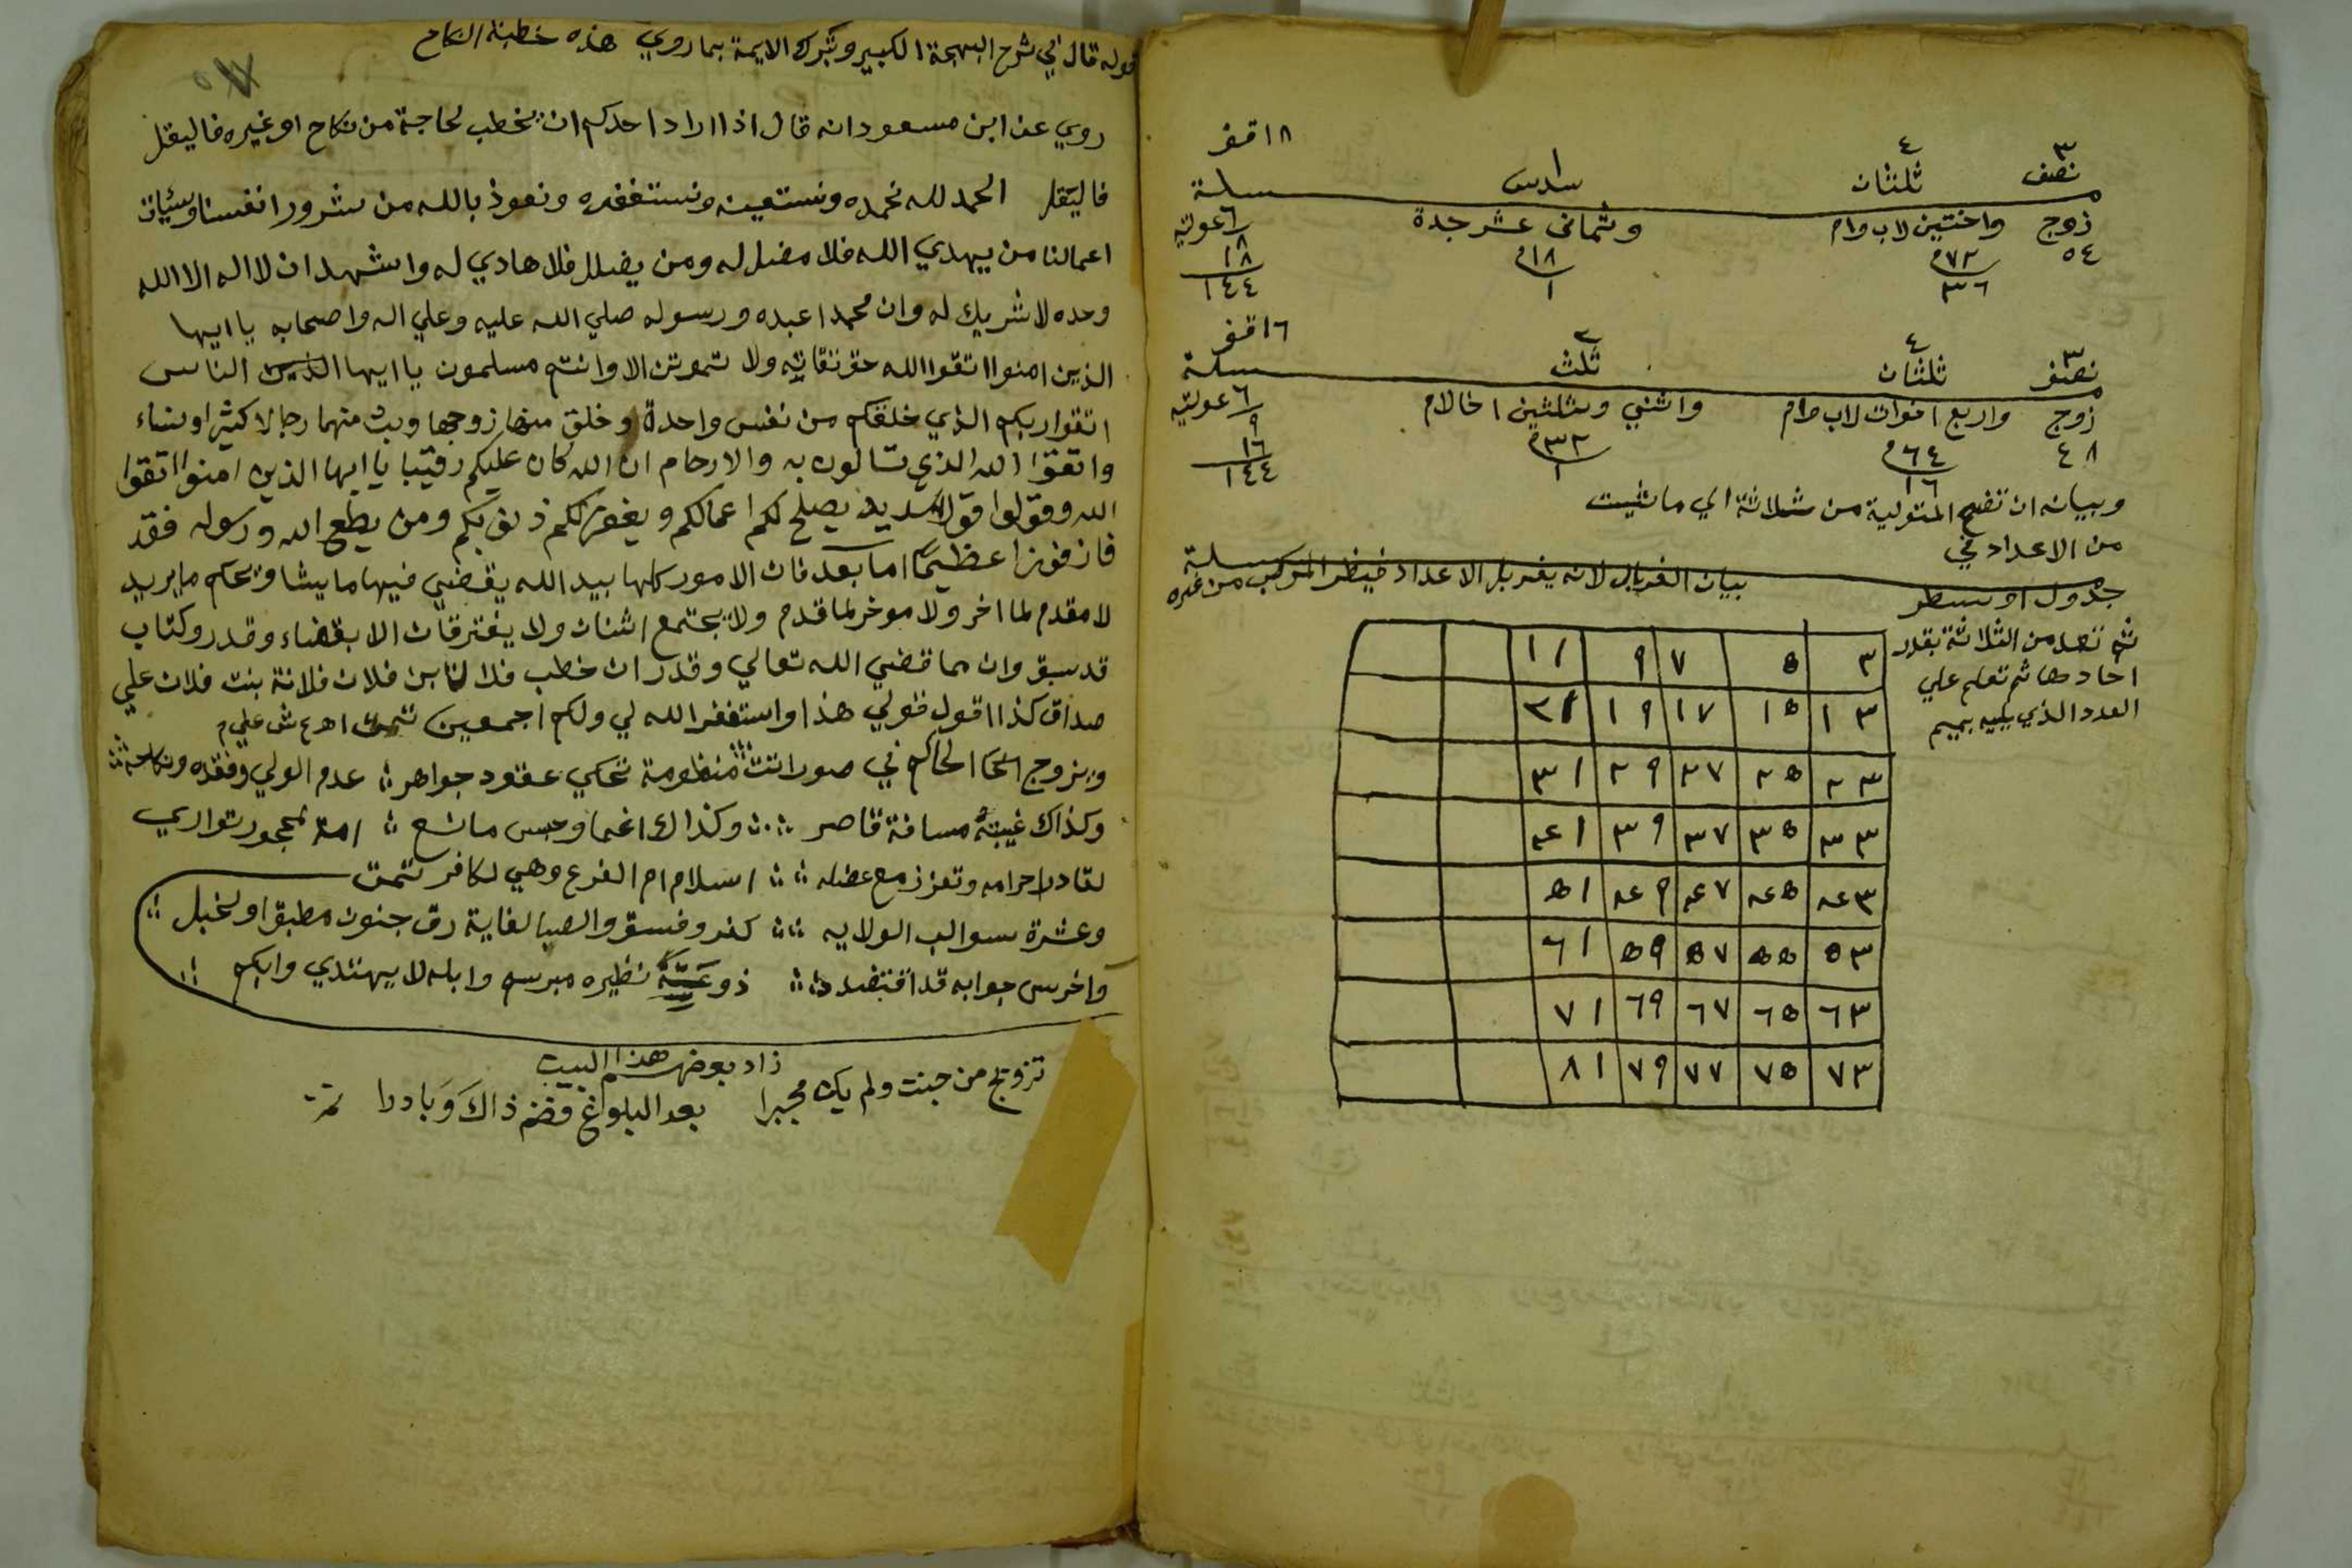 ١٨ اقفر
٣ ٤ ١
نصف ثلثان سادس
مسئلة
زوج واختين لاب وام وثماني عشر جدة ٦ عولية
٥٤ ٧٢ ١٨ ٨
٣٦ ١ ١٨
١٤٤
١٦ اقفر
٣ ٤ ٢
نصف ثلثان ثلث
مسئلة
زوج واربع اخوات لاب وام واثني وثلثين اخا لام ٦ عولية
٤٨ ٦٤ ٣٢ ٩
١٦ ١ ١٦
١٤٤
وبيانه ان تضع المتولية من ثلاثة الي ما شيت
من الاعداد في
جدول او سطر
ثم تعد من الثلاثة بقدر
احادها ثم تعلم علي
العدد الذي يليه بميم
مسئلة
بيان الغربال لانه يغربل الاعداد فيظر المركب من غيره
٣ ٥ ٧ ٩ ١١
١٣ ١٥ ١٧ ١٩ ٢١
٢٣ ٢٥ ٢٧ ٢٩ ٣١
٣٣ ٣٥ ٣٧ ٣٩ ٤١
٤٣ ٤٥ ٤٧ ٤٩ ٥١
٥٣ ٥٥ ٥٧ ٥٩ ٦١
٦٣ ٦٥ ٦٧ ٦٩ ٧١
٧٣ ٧٥ ٧٧ ٧٩ ٨١
قوله قال في شرح البهجة الكبير وتبرك الايمة بما روي هذه خطبة النكاح
روي عن ابن مسعود انه قال اذا اراد احدكم ان يخطب لحاجة من نكاح او غيره فاليقل
فاليقل الحمد لله نحمده ونستعينه ونستغفره ونعوذ بالله من شرور انفسنا وسيئات
اعمالنا من يهدي الله فلا مضل له ومن يضلل فلا هادي له واشهد ان لا اله الا الله
وحده لا شريك له وان محمدا عبده ورسوله صلي الله عليه وعلي اله واصحابه يا ايها
الذين امنوا اتقوا الله حق تقاته ولا تموتن الا وانتم مسلمون يا ايها الذين الناس
اتقوا ربكم الذي خلقكم من نفس واحدة وخلق منها زوجها وبث منهما رجالا كثيرا ونساء
واتقوا الله الذي تسالون به والارحام ان الله كان عليكم رقيبا يا ايها الذين امنوا اتقوا
الله وقولوا قولا سديدا يصلح لكم اعمالكم ويغفر لكم ذنوبكم ومن يطع الله ورسوله فقد
فاز فوزا عظيما اما بعد فان الامور كلها بيد الله يقضي فيها ما يشا ويحكم ما يريد
لا مقدم لما اخر ولا موخر لما قدم ولا يجتمع اثنان ولا يفترقان الا بقضاء وقدر وكتاب
قد سبق وان مما قضي الله تعالي وقدر ان خطب فلان ابن فلان فلانة بنت فلان علي
صداق كذا اقول قولي هذا واستغفر الله لي ولكم اجمعين تمت اه ع ش علي م
ويزوج الحاكم في صور اتت منظومة تحكي عقود جواهر عدم الولي وفقده ونكاحه
وكذاك غيبته مسافة قاصر وكذاك اغما وحبس مانع امة لمحجور تواري
لقادر احرامه وتعزز مع عضله اسلام ام الفرع وهي لكافر تمت
وعشرة سوالب الولايه كفر وفسق والصبا لغاية رق جنون مطبق او لخبل
واخرس جوابه قد اقتضد ذو عته نظيره مبرسم وابله لا يهتدي وابكم
زاد بعضهم هذا البيت
تزويج من جنت ولم يك مجبرا بعد البلوغ فضم ذاك وبادرا تمت